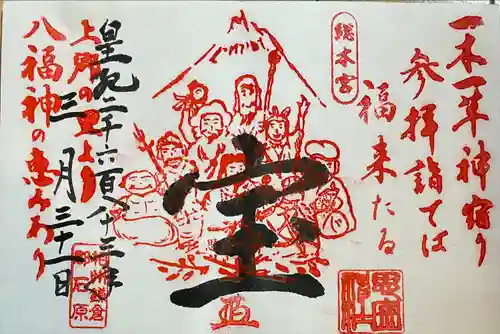 総本宮
一木一草神宿り
参拝詣てば
福来たる
宝
皇紀二千六百八十三年
三月三十一日
八福神の恵みあり